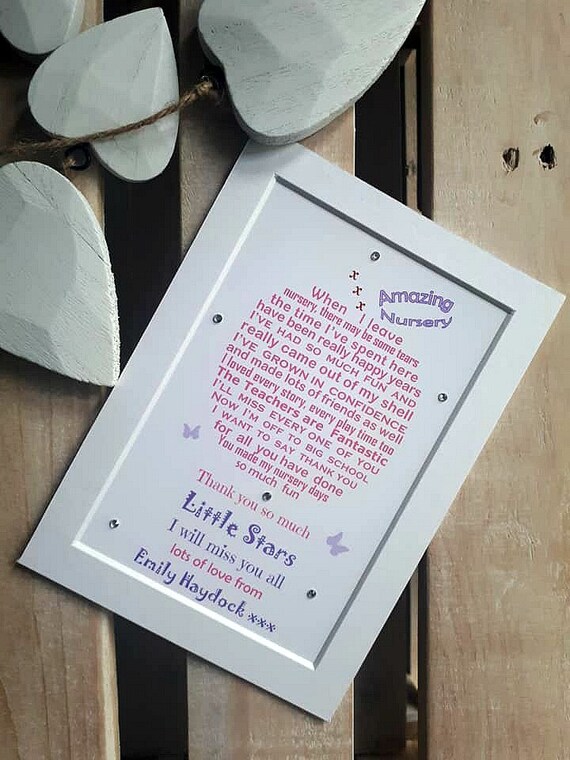 x
x
x
Amazing
Nursery
When I leave
nursery, there may be some tears
the time I've spent here
have been really happy years
I'VE HAD SO MUCH FUN AND
really came out of my shell
I'VE GROWN IN CONFIDENCE
and made lots of friends as well
I loved every story, every play time too
The Teachers are Fantastic
I'LL MISS EVERY ONE OF YOU
NOW I'M OFF TO BIG SCHOOL
I WANT TO SAY THANK YOU
for all you have done
You made my nursery days
so much fun
Thank you so much
Little Stars
I will miss you all
lots of love from
Emily Haydock xxx